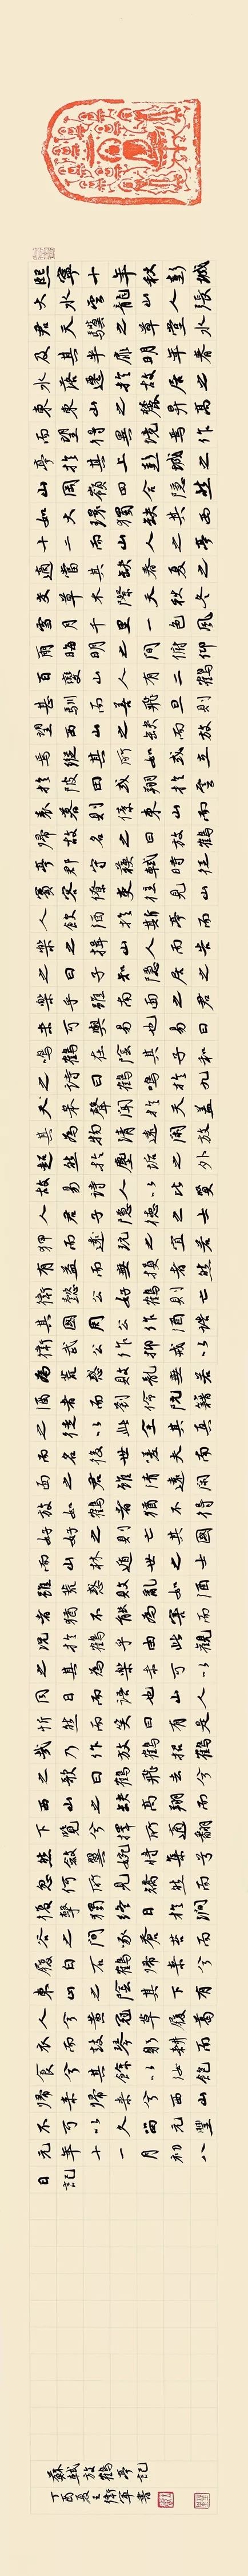 熙寧十年秋彭城
大水雲龍山人張
君天驥之草堂水
及其半扉明年春
水落遷於故居之
東東山之麓升高
而望得異境焉作
亭於其上彭城之
山岡嶺四合隱然
如大環獨缺其西
十二而山人之亭
適當其缺春夏之
交草木際天秋冬
雪月千里一色風
雨晦明之間俯仰
百變山人有二鶴
甚馴而善飛旦則
望西山之缺而放
焉縱其所如或立
於陂田或翔於雲
表暮則傃東山而
歸故名之曰放鶴
亭郡守蘇軾時從
賓佐僚吏往見山
人飲酒於斯亭而
樂之挹山人而告
之曰子知隱居之
樂乎雖南面之君
未可與易也易曰
鳴鶴在陰其子和
之詩曰鶴鳴於九
天皋聲聞於天蓋
其為物清遠閒放
超然於塵埃之外
故易詩人以比賢
人君子隱德之士
狎而遠玩之宜若
有益而無損者然
衛懿公好鶴則亡
其國周公作酒誥
衛武公作抑戒以
為荒惑敗亂無若
酒者而劉伶阮籍
之徒以此全其真
而名後世嗟夫南
面之君雖清遠閒
放如鶴者猶不得
好好之則亡其國
而山林遁世之士
雖荒惑敗亂如酒
者猶不能為害而
況於鶴乎由此觀
之其為樂未可以
同日而語也山人
忻然而笑曰有是
哉乃作放鶴招鶴
之歌曰鶴飛去兮
西山之缺高翔而
下覽兮擇所適翻
然斂翼婉將集兮
忽何所見矯然而
復擊獨終日於澗
谷之間啄蒼苔而
履白石鶴歸來兮
東山之陰其下有
人兮黃冠草屨葛
衣而鼓琴躬耕而
食兮其餘以汝飽
歸來歸來兮西山
不可以久留元豐
元年十一月初八
日記
蘇軾放鶴亭記
丁酉夏王衛軍書